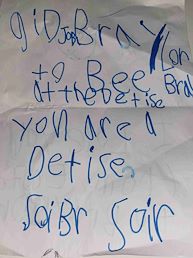 giDJobBray/Lor
to Bee Bra
at the Detise
you are a
Detise.
SaiBr Soir